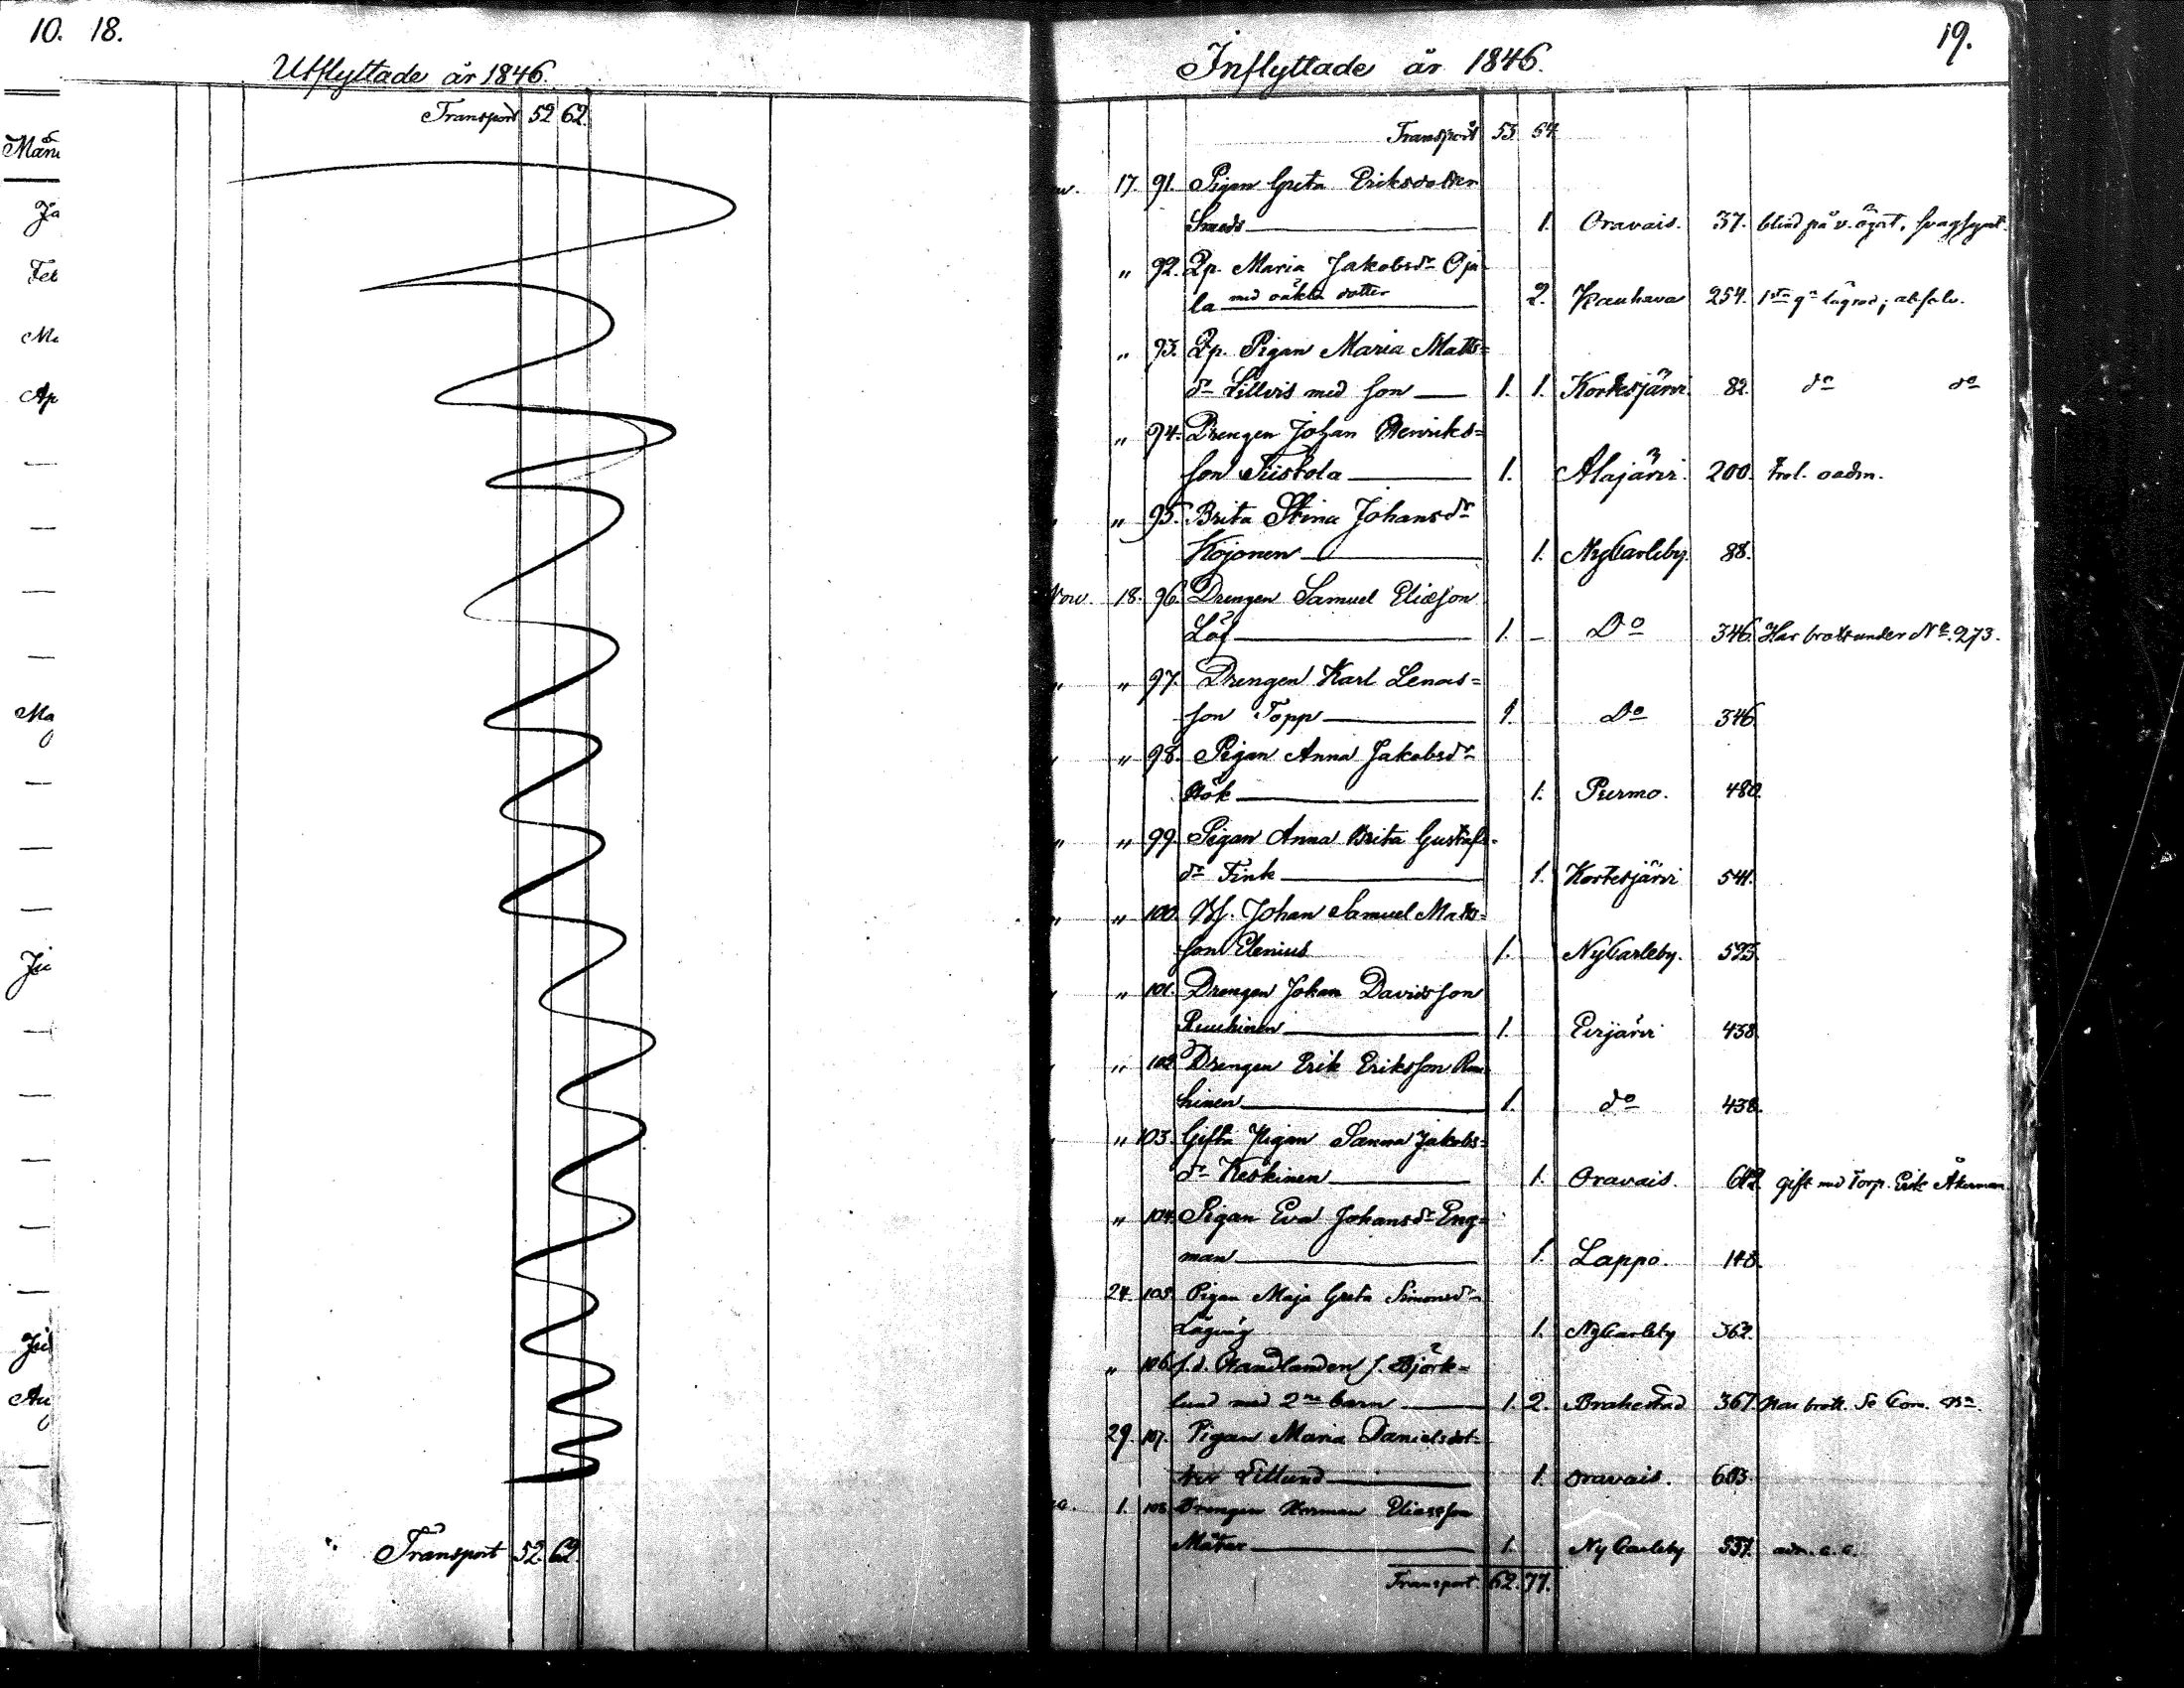 10. 18.
Utflyttade år 1846.
Transport 52 62.
Jä
Feb
Ma
Ap
Maj
Ju
Jul
Au
Transport 52. 62.
19.
Inflyttade år 1846.
Transport 53. 64
17. 91. Pigan Greta Eriksdotter
Smeds 1. Oravais. 37. blind på v. ögat, svagsynt.
" 92. Qp. Maria Jakobsdr Oja
la med oäkta dotter 2. Kauhava 254. 1sta gn lägrad; absolv.
" 93. Qp. Pigan Maria Matts=
dr Lillvis med son 1. 1. Kortesjärvi 82. do do
" 94. Drengen Johan Henriks=
son Tiistola 1. Alajärvi. 200. frol. oadm.
" 95. Brita Stina Johansdr
Kojonen 1. NyCarleby. 88.
Nov. 18. 96. Drengen Samuel Eliasson
Löf 1. – Do 346. Har brott under No. 273.
" " 97. Drengen Karl Lenas=
son Topp 1. Do 346.
" " 98. Pigan Anna Jakobsdr
Hök 1. Purmo. 480.
" " 99. Pigan Anna Brita Gustafs-
dr Fink 1. Kortesjärvi 541.
" " 100. Johan Samuel Matts=
son Elenius 1. NyCarleby. 523.
" 101. Drengen Johan Davidsson
Ruuhinen 1. Evijärvi 438.
" 102. Drengen Erik Eriksson Ruu
hinen 1. do 438.
" 103. Gifta Pigan Sanna Jakobs=
dr Keskinen 1. Oravais. 612. gift med Torp. Erik Åkerman.
" 104. Pigan Eva Johansdr Eng=
man 1. Lappo. 148.
24. 105. Pigan Maja Greta Simonsdr
1. NyCarleby 362.
" 106. f.d. Handlanden J. Björk=
lund med 2ne barn 1. 2. Brahestad 367. Har brott. Se Com. Bn.
29. 107. Pigan Maria Danielsdot-
ter Litlund 1. Oravais. 603.
1. 108. Drengen Herman Eliasson
Mätar 1. Ny Carleby 557. adm. c. c.
Transport. 62. 77.